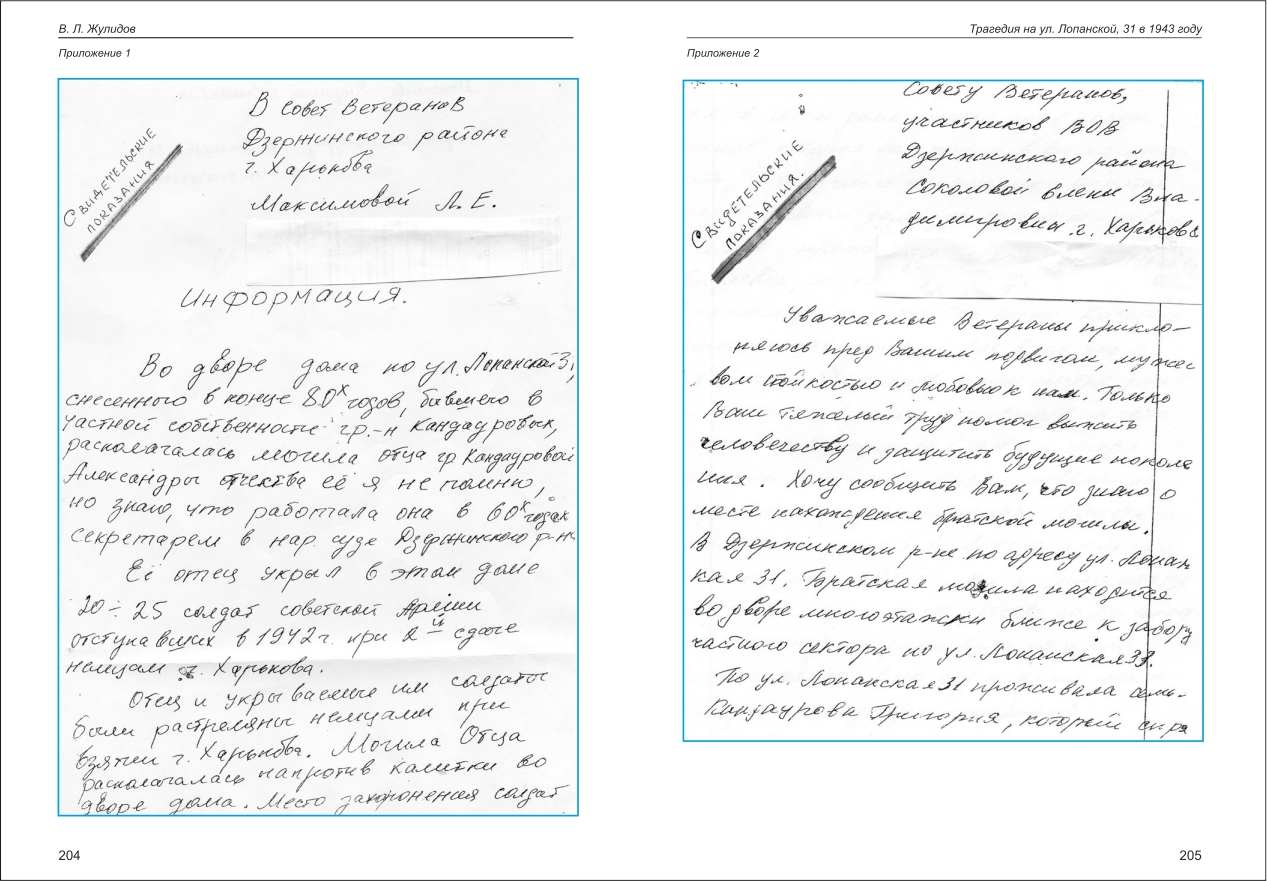 В. Л. Жулидов
Приложение 1
Свидетельские
показания
В Совет Ветеранов
Дзержинского района
г. Харькова
Максимовой Л. Е.
Информация.
Во дворе дома по ул. Лопанской 31,
снесенного в конце 80х годов, бывшего в
частной собственности гр.-н Кандауровых,
располагалась могила отца гр. Кандауровой
Александры отчества её я не помню,
но знаю, что работала она в 60х годах
секретарем в нар. суде Дзержинского р-на
Её отец укрыл в этом доме
20 ÷ 25 солдат советской Армии
отступавших в 1942 г. при 2й сдаче
немцам г. Харькова.
Отец и укрываемые им солдаты
были растреляны немцами при
взятии г. Харькова. Могила Отца
располагалась напротив калитки во
дворе дома. Место захоронения солдат
204
Трагедия на ул. Лопанской, 31 в 1943 году
Приложение 2
Свидетельские
показания.
Совету Ветеранов,
участников ВОВ
Дзержинского района
Соколовой Елены Вла-
димировны г. Харькова
Уважаемые Ветераны прикло-
няюсь пред Вашим подвигом, мужес
вом стойкостью и любовью к нам. Только
Ваш тяжелый труд помог выжить
человечеству и защитить будущие поколе
ния. Хочу сообщить Вам, что знаю о
месте нахождения братской могилы.
В Дзержинском р-не по адресу ул. Лопан
ская 31. Братская могила находится
во дворе многоэтажки ближе к забору
частного сектора по ул. Лопанская 33.
По ул. Лопанская 31 проживала семь
Кандаурова Григория, который
205